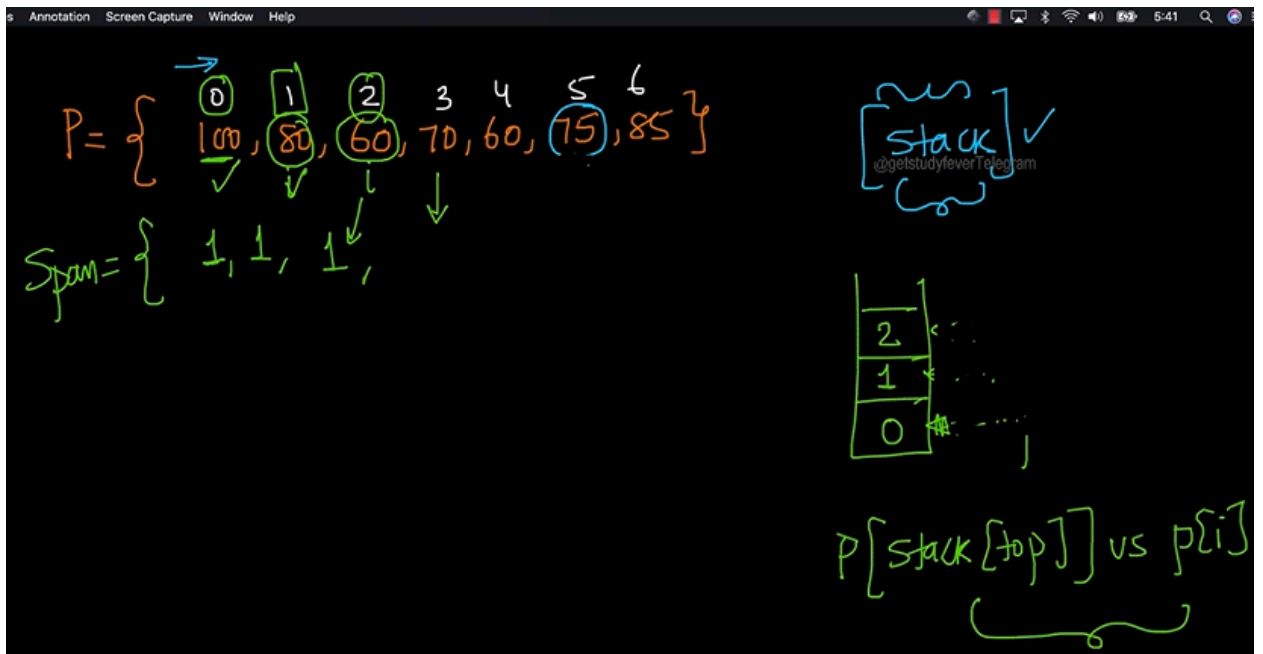 s Annotation Screen Capture Window Help 5:41
0 1 2 3 4 5 6
P = { 100, 80, 60, 70, 60, 75, 85 }
[Stack] ✓
@getstudyfeverTelegram
Span = { 1, 1, 1,
2
1
0
P[stack[top]] vs p[i]